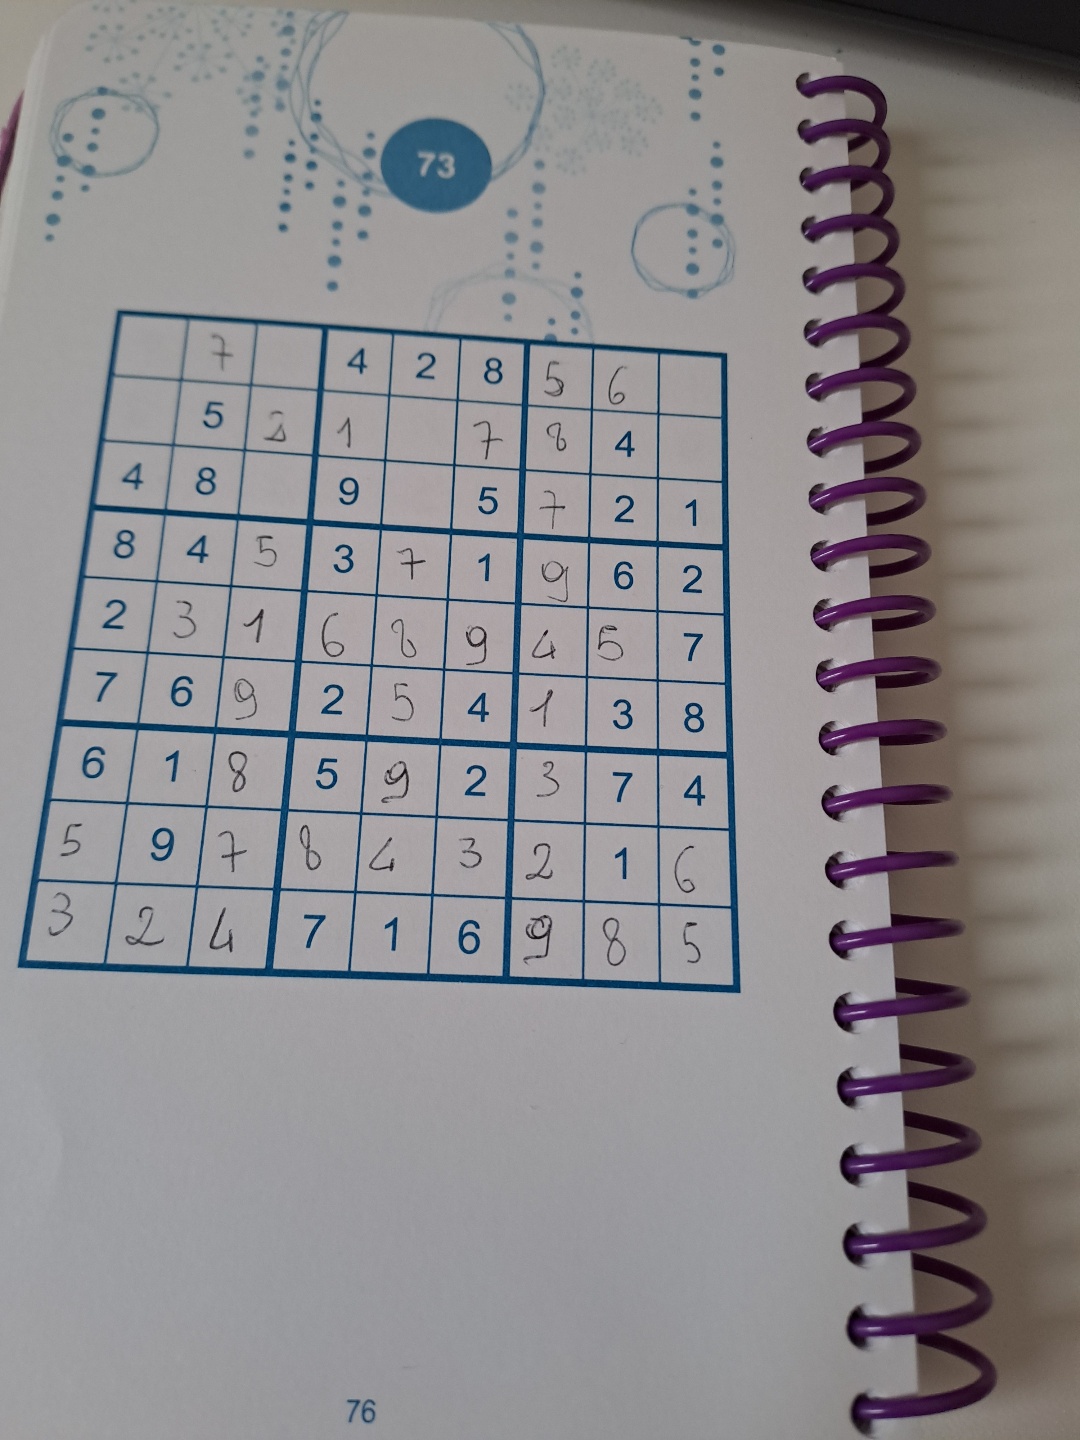 73
7 4 2 8 5 6
5 2 1 7 8 4
4 8 9 5 7 2 1
8 4 5 3 7 1 9 6 2
2 3 1 6 8 9 4 5 7
7 6 9 2 5 4 1 3 8
6 1 8 5 9 2 3 7 4
5 9 7 8 4 3 2 1 6
3 2 4 7 1 6 9 8 5
76